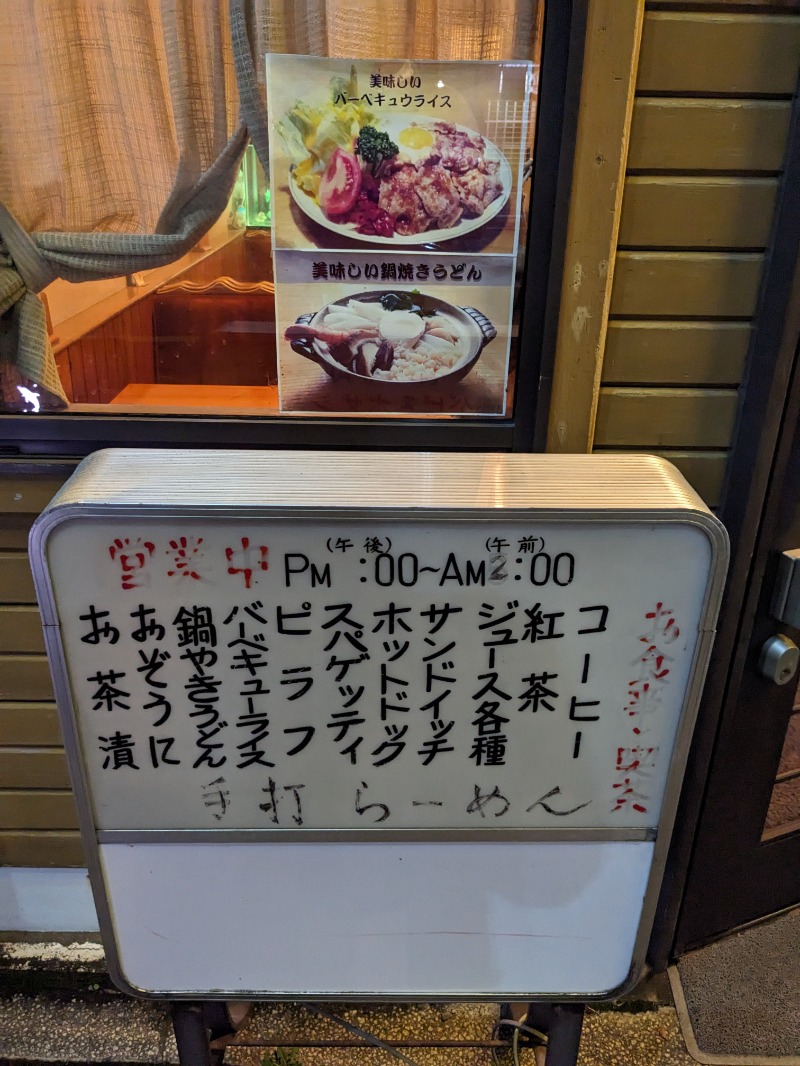 美味しい
バーベキュウライス
美味しい鍋焼きうどん
営業中 PM(午後) :00~AM(午前)2:00
お食事・喫茶
コーヒー
紅茶
ジュース各種
サンドイッチ
ホットドック
スパゲッティ
ピラフ
バーベキューライス
鍋やきうどん
おぞうに
お茶漬
手打らーめん